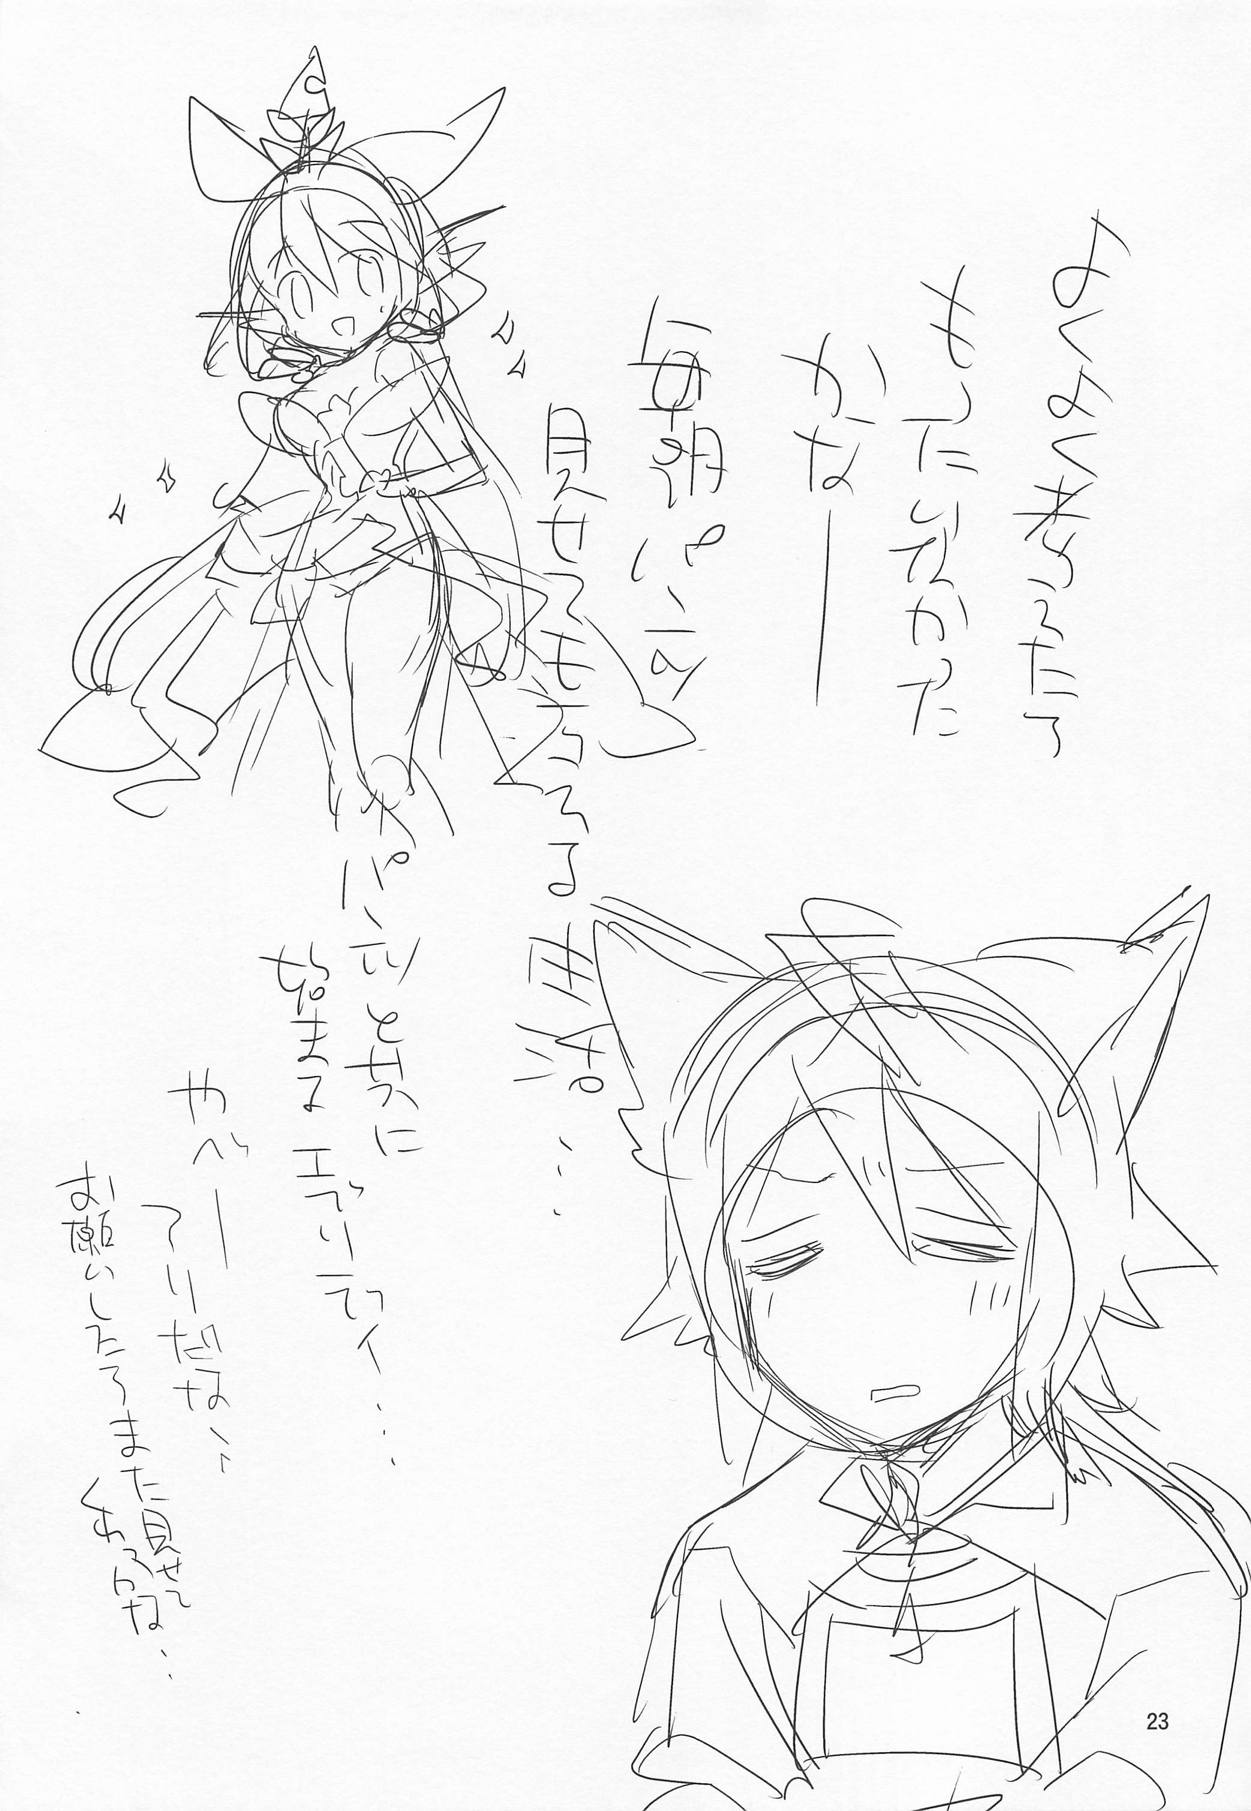 よくよく考えたら
もったいなかった
かなー
毎朝パンツ
見せてもらえる生活…
パンツと共に
始まるエブリデイ…
やべー
アリだな、、
お願いしたらまた見せて
くれっかな…
23